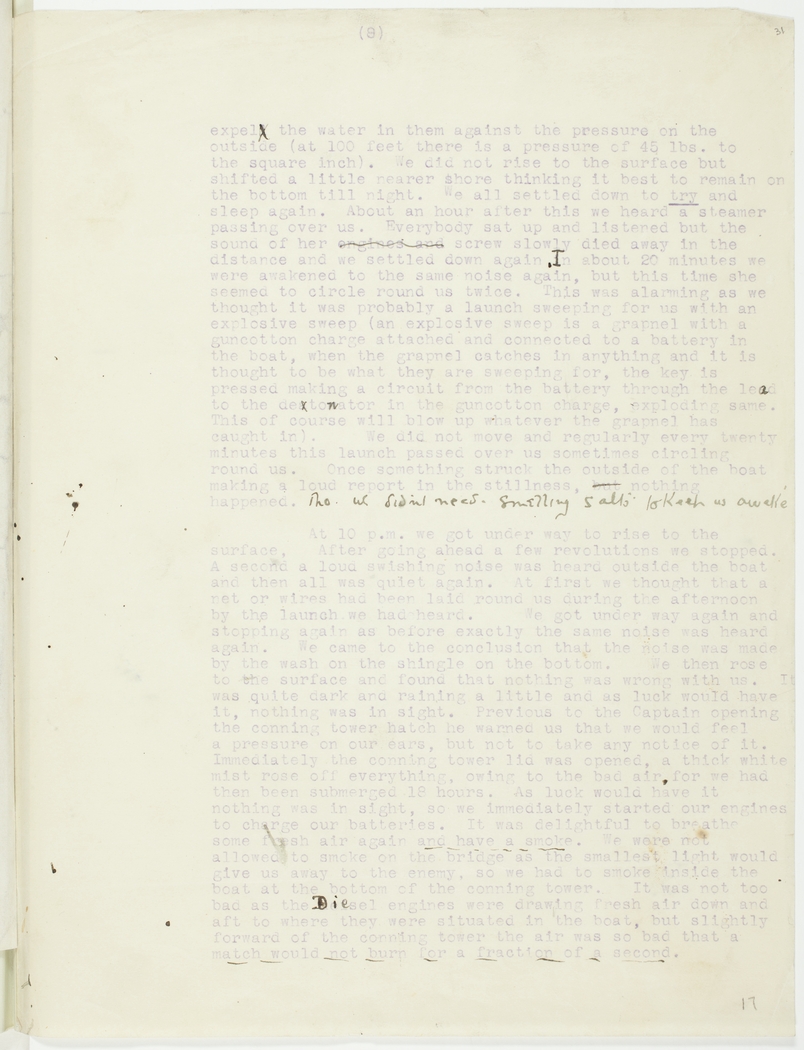 (8)
31
expel the water in them against the pressure on the
outside (at 100 feet there is a pressure of 45 lbs. to
the square inch). We did not rise to the surface but
shifted a little nearer shore thinking it best to remain on
the bottom till night. We all settled down to try and
sleep again. About an hour after this we heard a steamer
passing over us. Everybody sat up and listened but the
sound of her engines and screw slowly died away in the
distance and we settled down again. In about 20 minutes we
were awakened to the same noise again, but this time she
seemed to circle round us twice. This was alarming as we
thought it was probably a launch sweeping for us with an
explosive sweep (an explosive sweep is a grapnel with a
guncotton charge attached and connected to a battery in
the boat, when the grapnel catches in anything and it is
thought to be what they are sweeping for, the key is
pressed making a circuit from the battery through the lead
to the detonator in the guncotton charge, exploding same.
This of course will blow up whatever the grapnel has
caught in). We did not move and regularly every twenty
minutes this launch passed over us sometimes circling
round us. Once something struck the outside of the boat
making a loud report in the stillness, but nothing
happened. Tho. we didnt need. Smelling salts to Keep us awake
At 10 p.m. we got under way to rise to the
surface. After going ahead a few revolutions we stopped.
A second a loud swishing noise was heard outside the boat
and then all was quiet again. At first we thought that a
net or wires had been laid round us during the afternoon
by the launch we had heard. We got under way again and
stopping again as before exactly the same noise was heard
again. We came to the conclusion that the noise was made
by the wash on the shingle on the bottom. We then rose
to the surface and found that nothing was wrong with us. It
was quite dark and raining a little and as luck would have
it, nothing was in sight. Previous to the Captain opening
the conning tower hatch he warned us that we would feel
a pressure on our ears, but not to take any notice of it.
Immediately the conning tower lid was opened, a thick white
mist rose off everything, owing to the bad air, for we had
then been submerged 18 hours. As luck would have it
nothing was in sight, so we immediately started our engines
to charge our batteries. It was delightful to breathe
some fresh air again and have a smoke. We were not
allowed to smoke on the bridge as the smallest light would
give us away to the enemy, so we had to smoke inside the
boat at the bottom of the conning tower. It was not too
bad as the Diesel engines were drawing fresh air down and
aft to where they were situated in the boat, but slightly
forward of the conning tower the air was so bad that a
match would not burn for a fraction of a second.
17